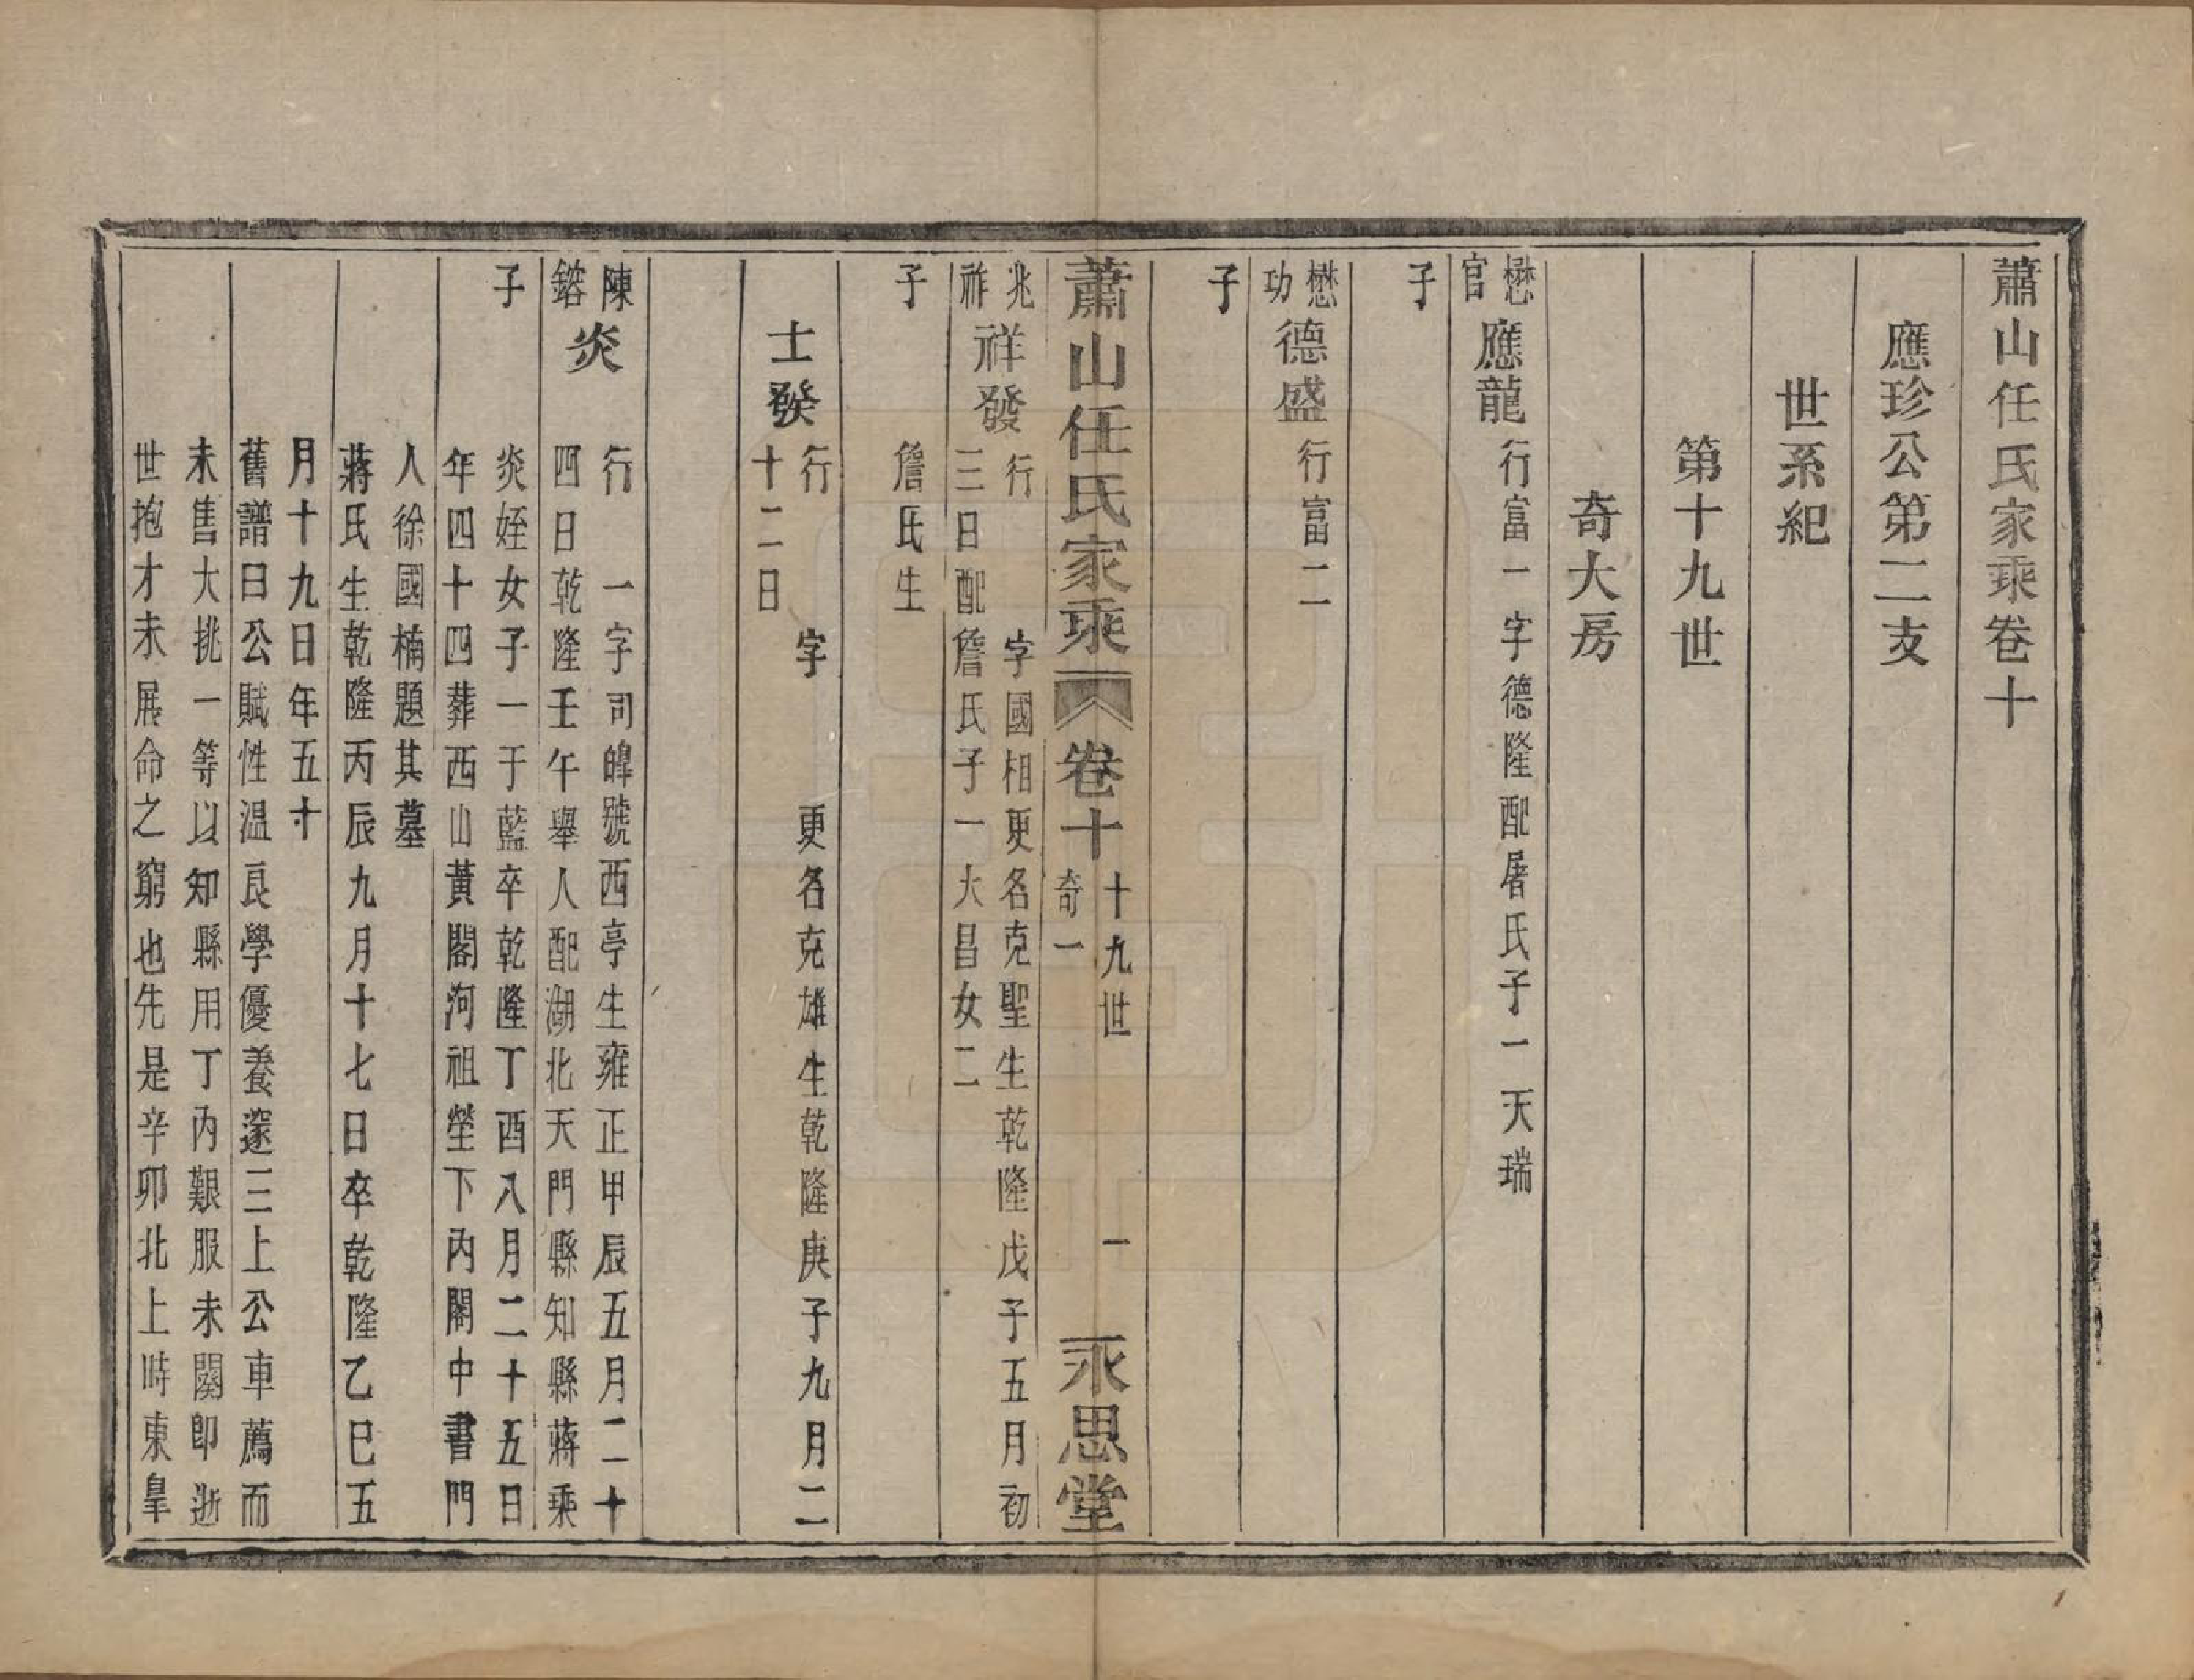 蕭山任氏家乘卷十
應珍公第二支
世系紀
第十九世
奇大房
懋官子
應龍
行富一字德隆配屠氏子一天瑞
懋功子
德盛
行富二
蕭山任氏家乘
卷十
十九世
奇一
一
永思堂
兆祚子
祥發
行 字國相更名克聖生乾隆戊子五月初
三日配詹氏子一大昌女二
詹氏生
士發
行 字 更名克雄生乾隆庚子九月二
十二日
陳鎔子
炎
行 一字司皥號西亭生雍正甲辰五月二十
四日乾隆壬午舉人配湖北天門縣知縣蔣乘
炎姪女子一于藍卒乾隆丁酉八月二十五日
年四十四葬西山黃閣河祖塋下內閣中書門
人徐國楠題其墓
蔣氏生乾隆丙辰九月十七日卒乾隆乙巳五
月十九日年五十
舊譜曰公賦性温良學優養邃三上公車薦而
未售大挑一等以知縣用丁內艱服未闋即逝
世抱才未展命之窮也先是辛卯北上時東皇